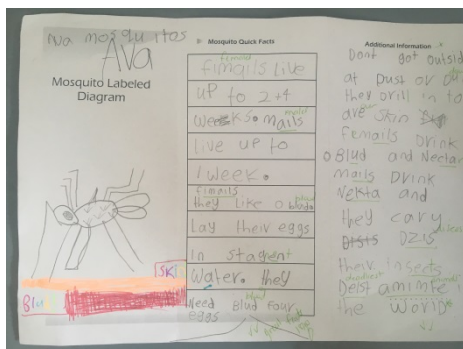 Ava mosquitos
AVA
Mosquito Labeled
Diagram
SKI
Blu
Mosquito Quick Facts
female
fimails live
up to 2+4
weeks. mails
live up to
1 week.
fimails
they like o blud
Lay their eggs
in stagent
Water. they
Need Blud four
eggs
Additional Information
Dont got outsid
at Dusk or
they Drill in to
are skin
Femails Drink
o Blud and Nectar
mails Drink
Nekta and
they cary
DZIS
their insects
Deist aminfe
the World